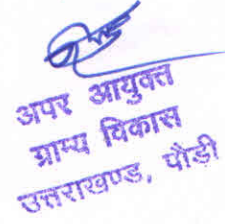 अपर आयुक्त
ग्राम्य विकास
उत्तराखण्ड, पौड़ी